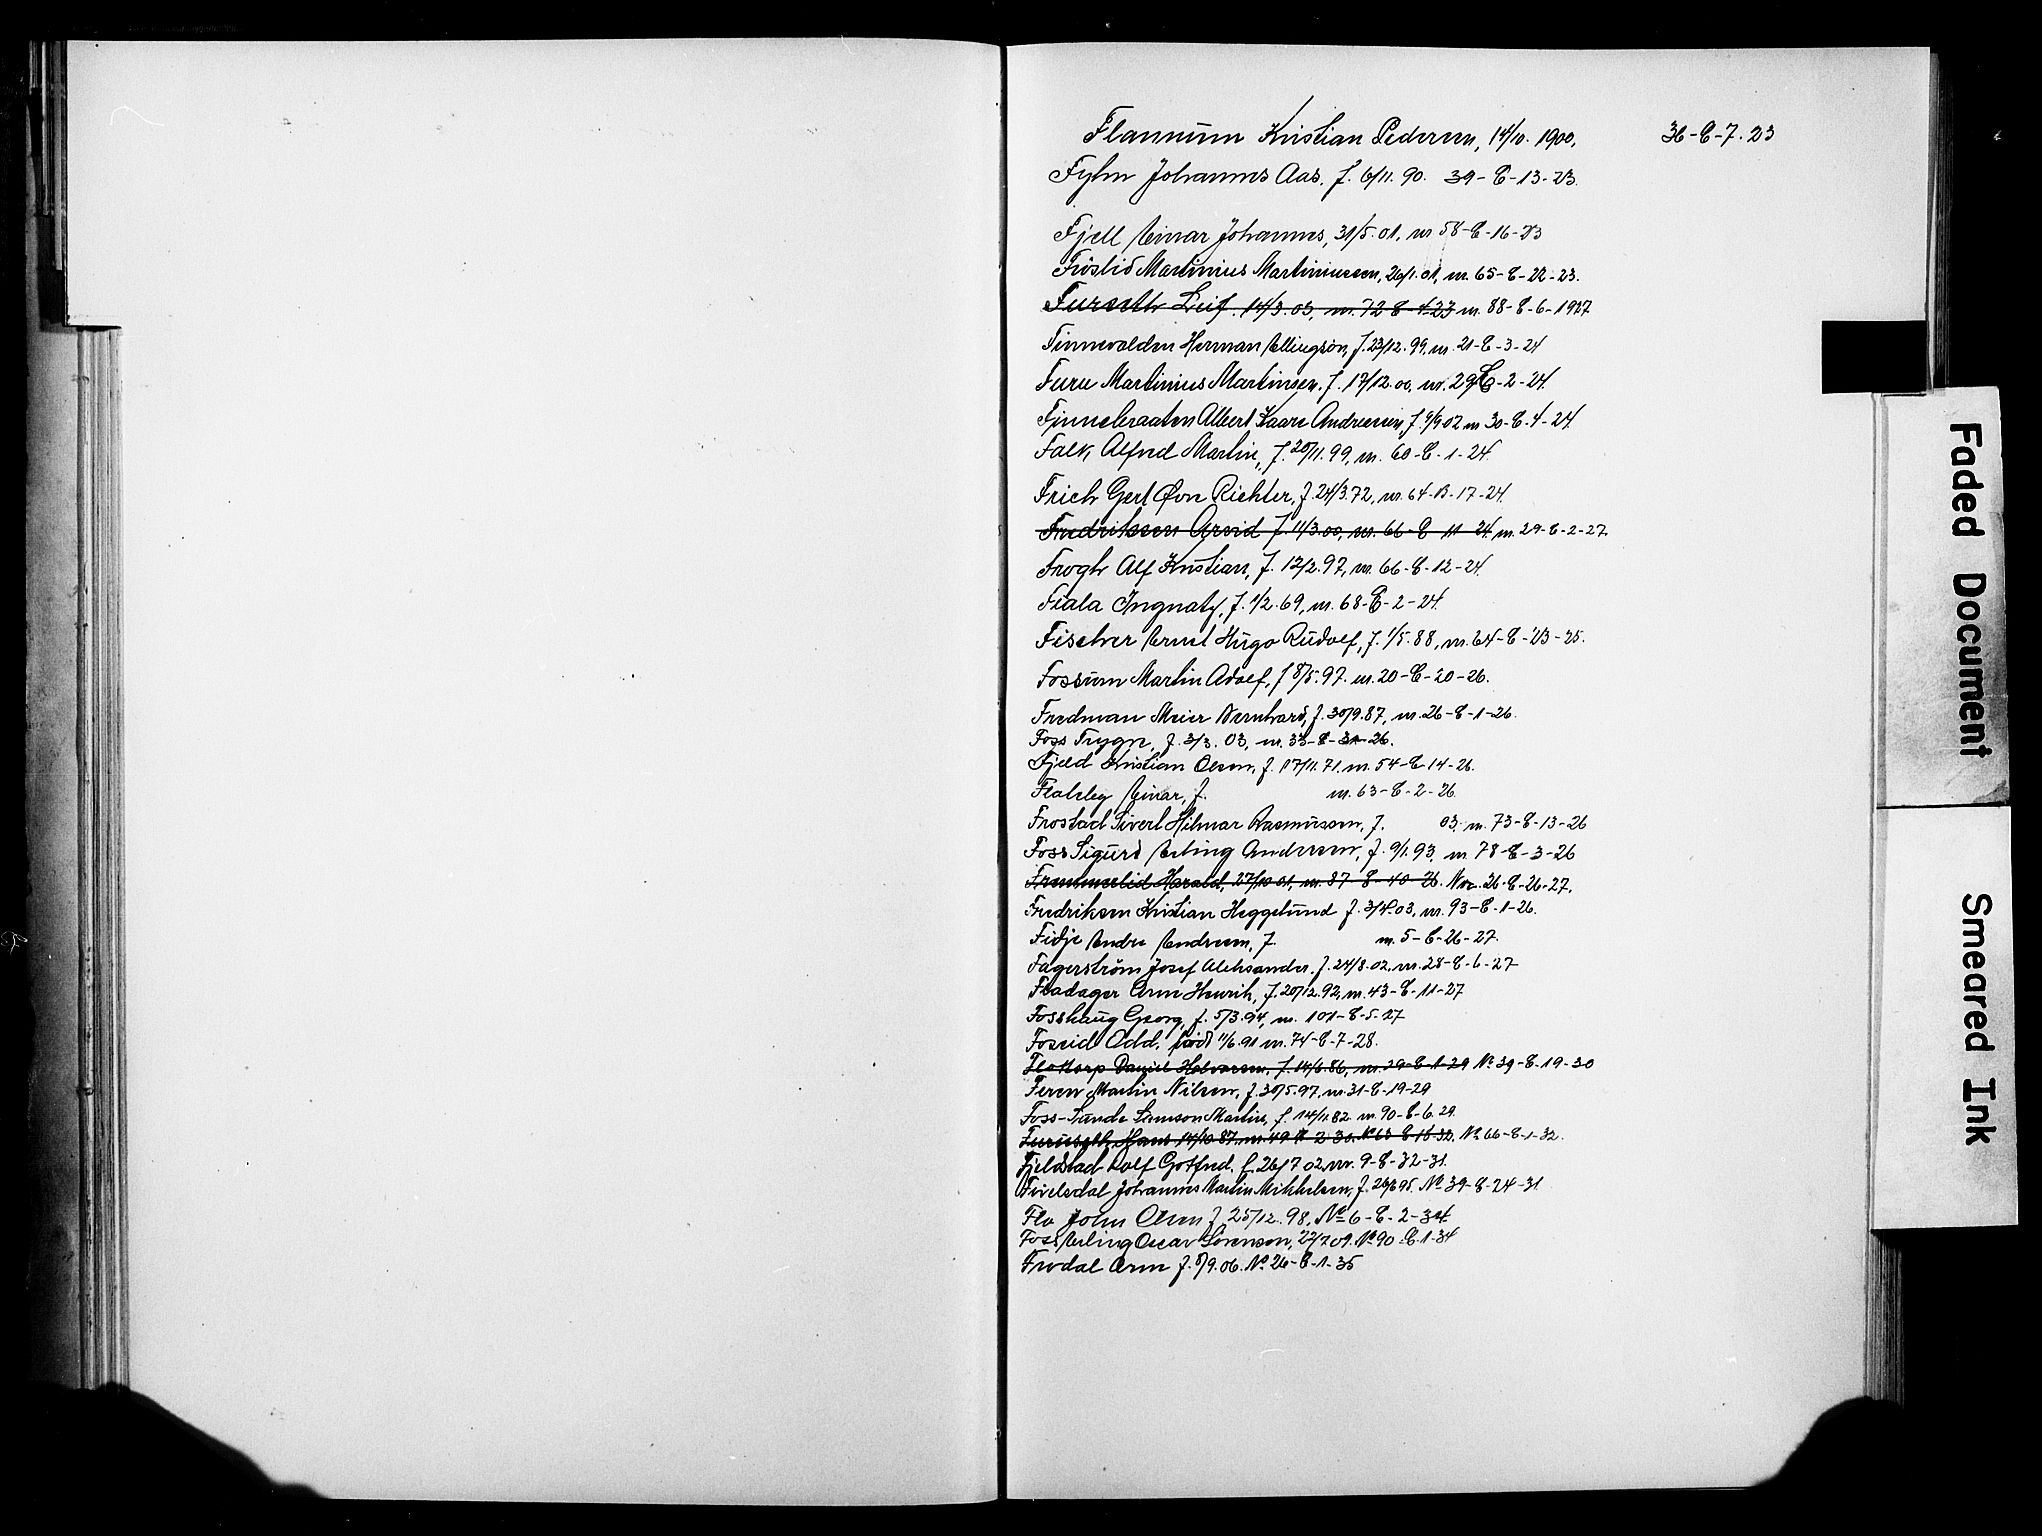 Flannum Kristian Pedersen, 14/10. 1900, 36-E-7. 23
Fylin Johannes Aas. f. 6/11. 90. 39-E-13-23.
Fjell Einar Johannes, 31/5.01, nr 58-E-16-23
Fröslid Martinius Martiniussen, 26/1.01, nr. 65-E-22-23.
Furseth Leif. 14/3.03, nr. 72-E-4-23 nr. 88-E-6-1927
Finnevolden Herman Ellingsön, f. 23/12. 99, nr. 21-E-3-24
Furu Martinius Martinsen. f. 17/12.00, nr. 29-E-2-24.
Finnebraaten Albert Kaare Andreesen, f. 9/9 02 nr 30-E-4-24.
Falk, Alfred Martin, f. 20/11. 99, nr. 60-E-1-24.
Frich Gert Richter, f. 24/3.72, nr. 64-B-17-24.
Fredriksen Arvid f. 11/3.00, nr. 66-E-11-24. nr. 29-E-2-27.
Frogh Alf Kristian, f. 12/2.97, nr. 66-E-12-24.
Fiala Ingnatz, f. 1/2.69, nr. 68-E-2-24.
Fischer Ernst Hugo Rudolf, f. 1/5.88, nr. 64-E-23-25.
Fossum Martin Adolf, f 8/5.97. nr. 20-E-20-26.
Fredman Meier Bernhard, f. 30/9.87, nr. 26-E-1-26.
Foss Trygve, f. 3/3. 03, nr. 33-E-31-26.
Fjeld Kristian Olsen, f. 17/11.71. nr. 54-E-14-26.
Flateby Einar, f. nr. 63-E-2-26.
Frostad Sivert Hilmar Rasmussen, f. 03, nr. 73-E-13-26
Foss Sigurd Erling Andersen, f. 9/1.93, nr 78-E-3-26
Fremmerlid Harald, 27/10 01, nr. 87-E-40-26. Nr. 26-E-26-27.
Fredriksen Kristian Heggelund f. 3/4.03, nr. 93-E-1-26.
Fidje Endre Endresen, f. nr. 5-E-26-27.
Fagerström Josef Aleksander. f. 24/8.02, nr. 28-E-6-27
Fladager Arne Henrik, f. 20/12.92, nr. 43-E-11-27
Fosshaug Georg, f. 5/3.94, nr. 101-E-5-27
Foseid Odd, född 11/6.91 nr. 74-E-7-28.
Flottorp Daniel Halvorsen, f. 14/6.86, nr. 29-E-1-29 No 39-E-19-30
Feren Martin Nilsen, f. 30/5.97, nr. 31-E-19-29
Foss-Sande Samson Martin, f. 14/11.82. nr. 90-E-6.29.
Furuseth, Hans 14/10 87. nr. 49 E 2-30. No 63-E-16-32. No. 66-E-1-32.
Fjeldstad Rolf Gotfred. f. 26/7 02, nr. 9-E-32-31.
Fivelsdal Johannes Martin Mikkelsen, f. 29/6 95. No 39-E-24-31
Flo John Olsen f. 25/12. 98, No 6-E-2-34.
Foss Erling Oscar Sörensen, 22/7 09. No 90-E-1-34
Frodal Arne f. 8/9.06. No. 26-E-1-35
Faded Document
Smeared Ink